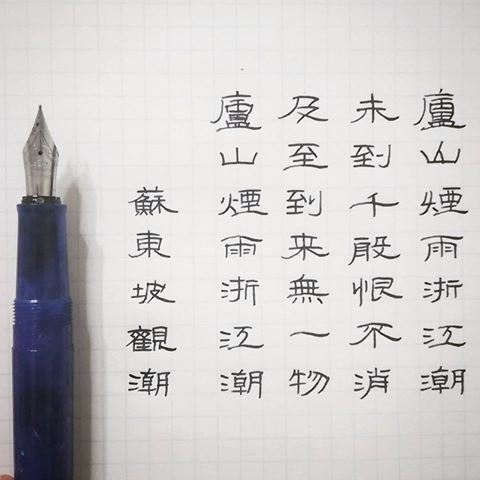 廬山煙雨浙江潮
未到千般恨不消
及至到来無一物
廬山煙雨浙江潮
蘇東坡觀潮